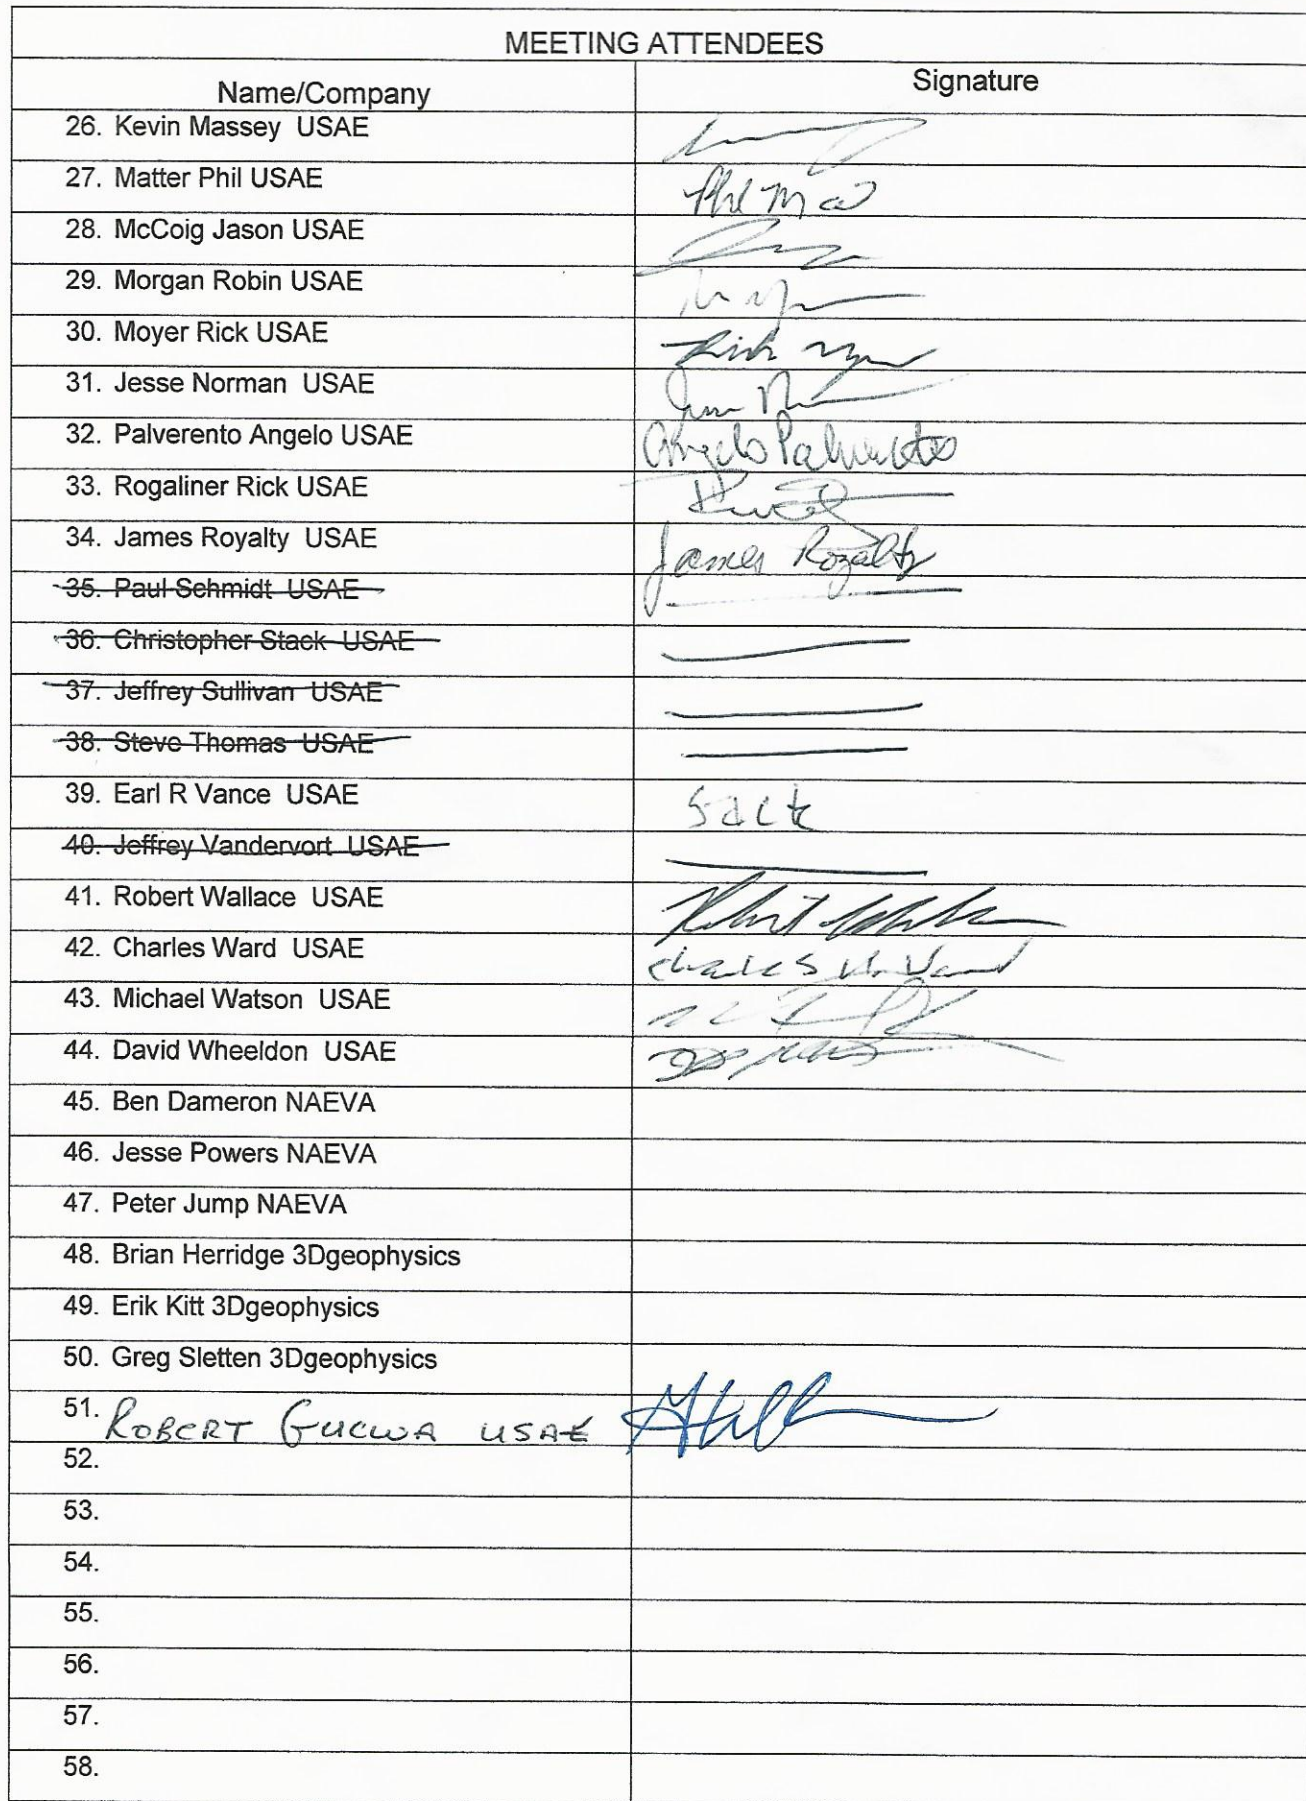 MEETING ATTENDEES
Name/Company
Signature
26. Kevin Massey USAE
27. Matter Phil USAE
Phil
28. McCoig Jason USAE
29. Morgan Robin USAE
30. Moyer Rick USAE
Rick
31. Jesse Norman USAE
32. Palverento Angelo USAE
Angelo
33. Rogaliner Rick USAE
34. James Royalty USAE
James Royalty
35. Paul Schmidt USAE
36. Christopher Stack USAE
37. Jeffrey Sullivan USAE
38. Steve Thomas USAE
39. Earl R Vance USAE
40. Jeffrey Vandervort USAE
41. Robert Wallace USAE
Robert
42. Charles Ward USAE
Charles Ward
43. Michael Watson USAE
44. David Wheeldon USAE
45. Ben Dameron NAEVA
46. Jesse Powers NAEVA
47. Peter Jump NAEVA
48. Brian Herridge 3Dgeophysics
49. Erik Kitt 3Dgeophysics
50. Greg Sletten 3Dgeophysics
51. ROBERT GUCWA USAE
52.
53.
54.
55.
56.
57.
58.